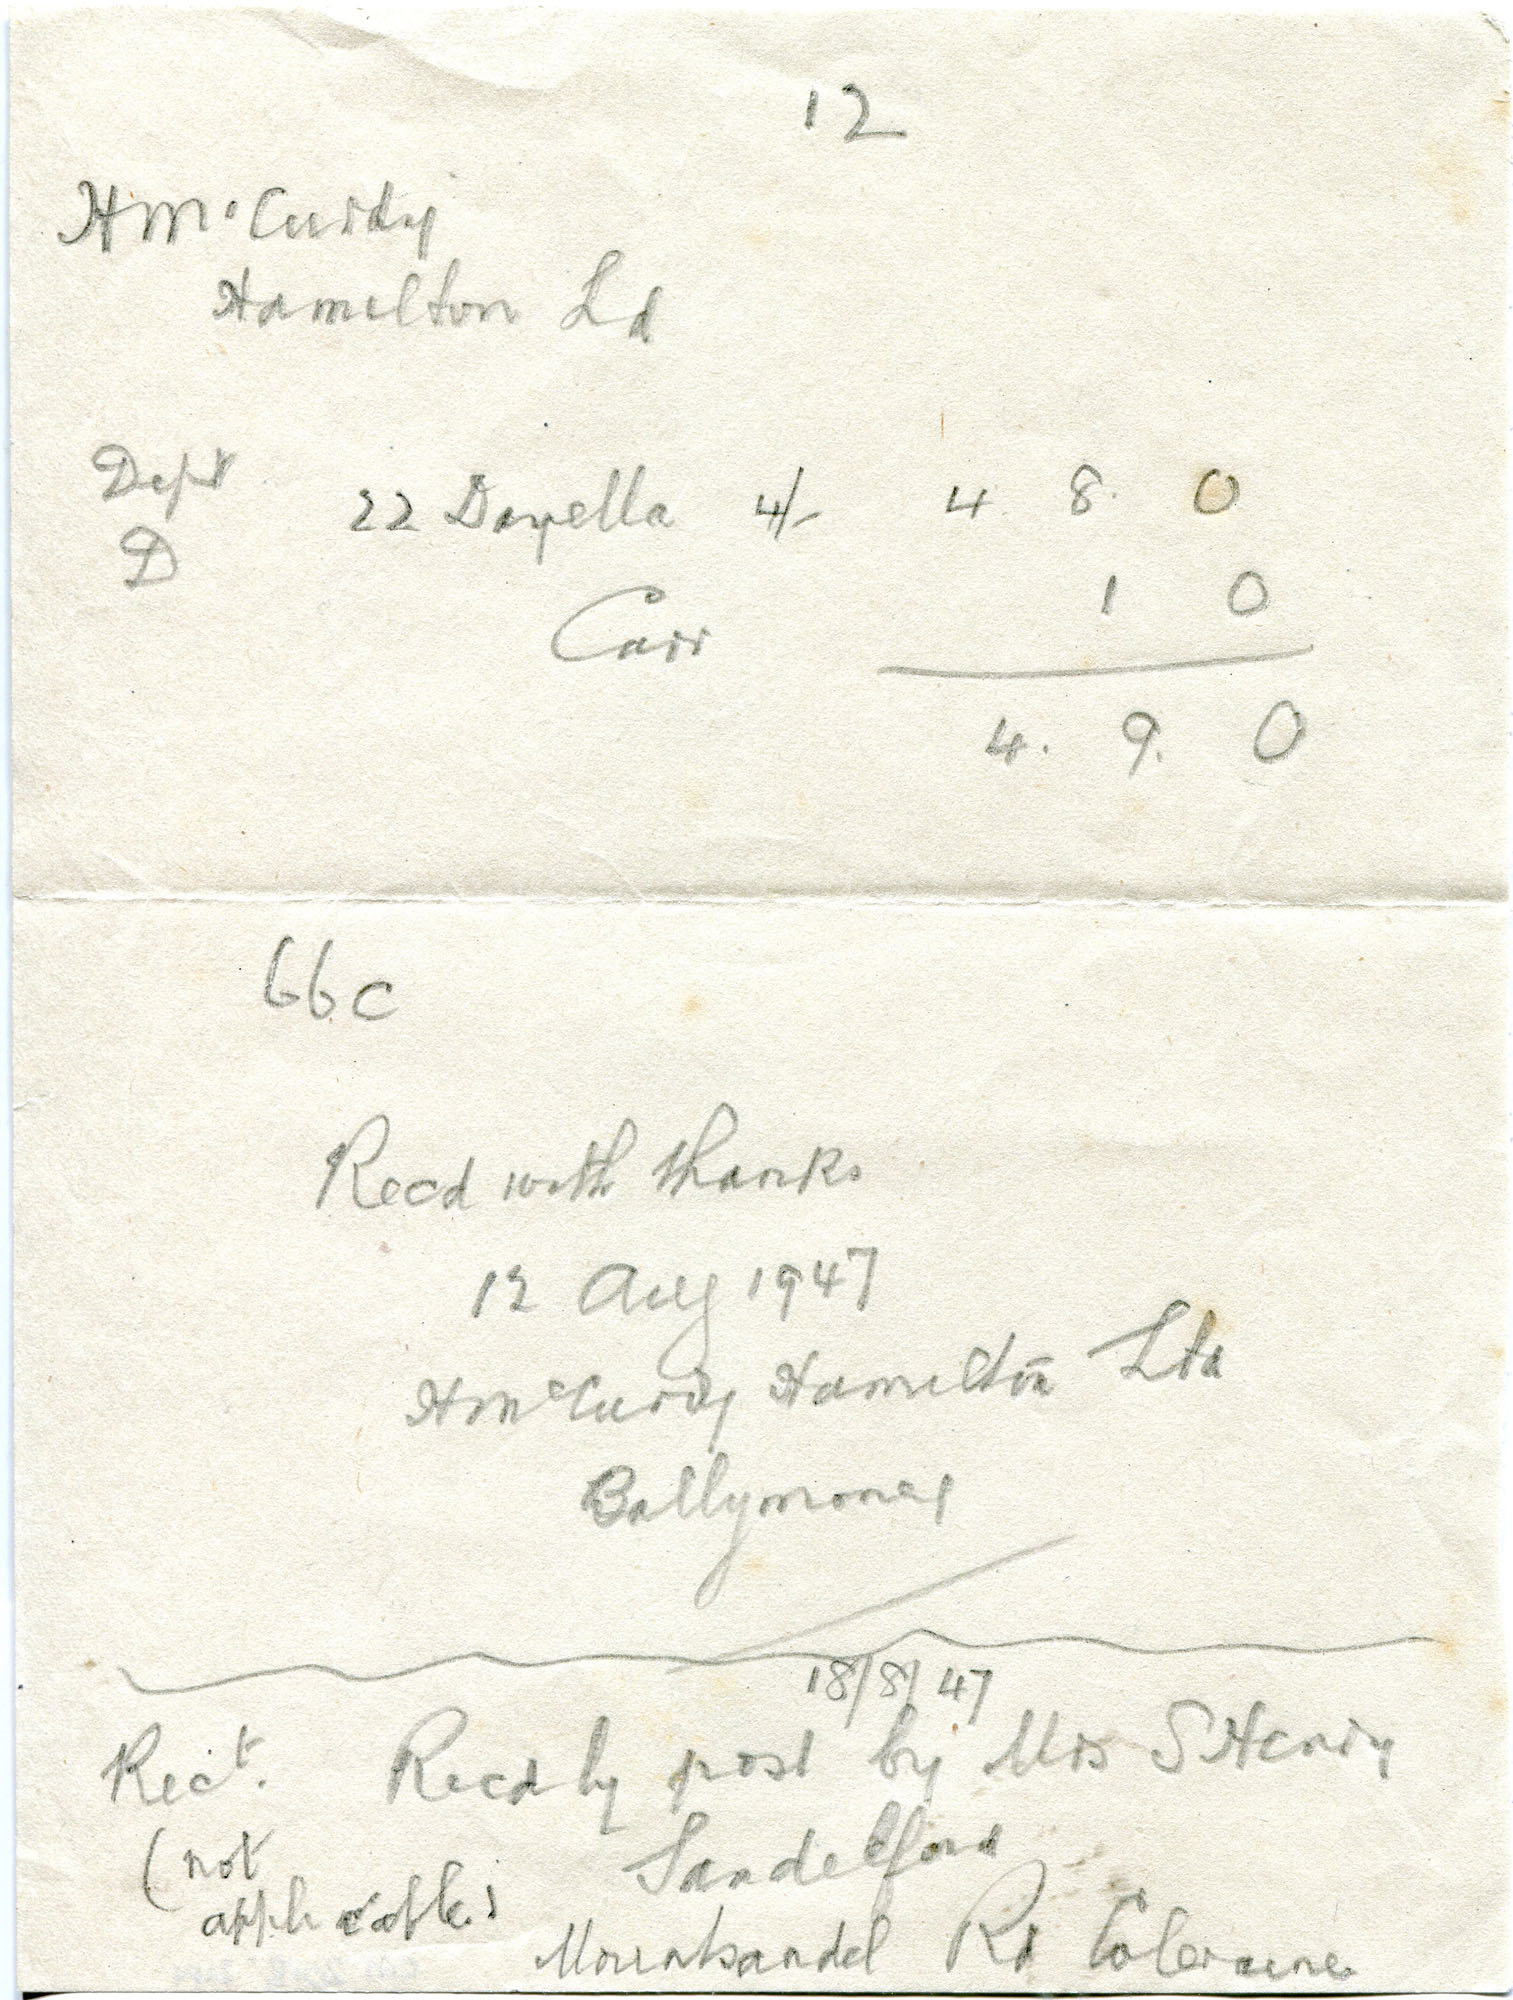 12
H Mc Curdy
Hamilton Ld
Dept
D
22 Dayella 4/- 4. 8. 0
Carr 1 0
4. 9. 0
66c
Recd with thanks
12 Aug 1947
H McCurdy Hamilton Ltd
Ballymoney
18/8/47
Rect. Recd by post by Mrs S Henry
(not applicable) Sandelford
Mountsandel Rd Coleraine